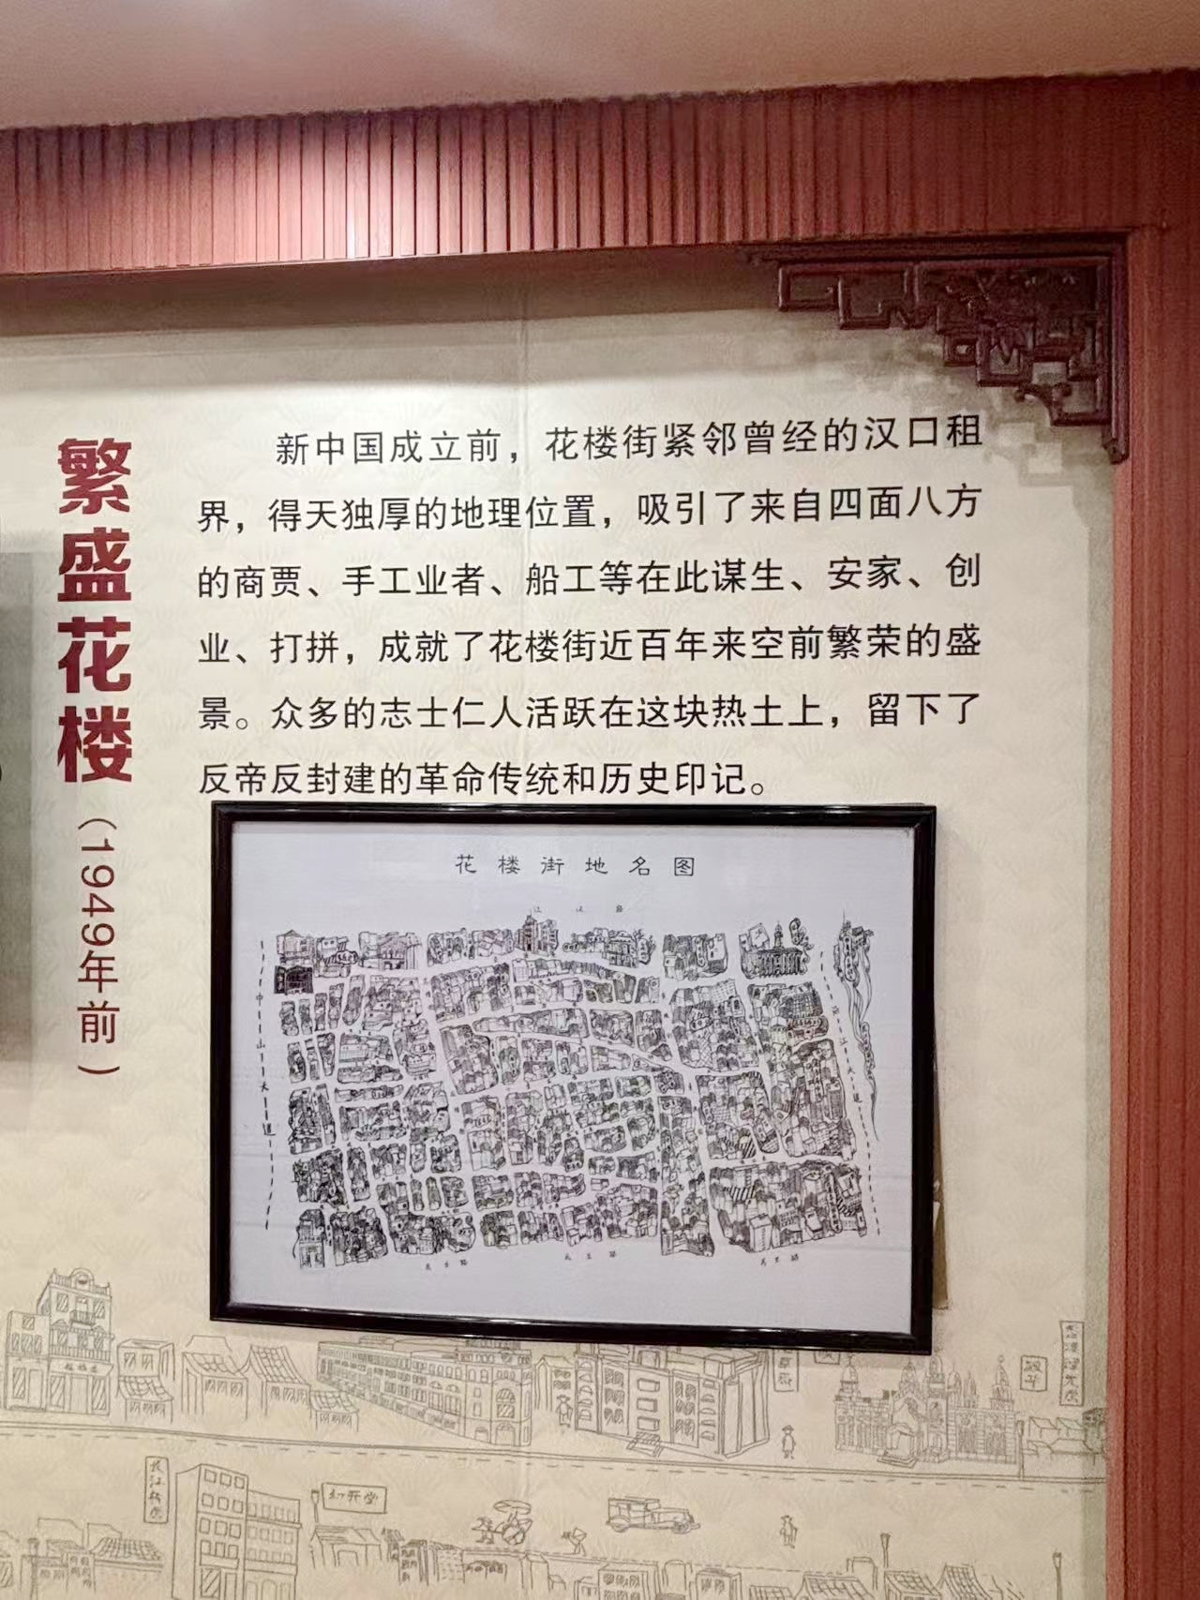 繁盛花楼（1949年前）
新中国成立前，花楼街紧邻曾经的汉口租
界，得天独厚的地理位置，吸引了来自四面八方
的商贾、手工业者、船工等在此谋生、安家、创
业、打拼，成就了花楼街近百年来空前繁荣的盛
景。众多的志士仁人活跃在这块热土上，留下了
反帝反封建的革命传统和历史印记。
花楼街地名图
江汉路
中山大道
沿江大道
民生路
民生路
民生路